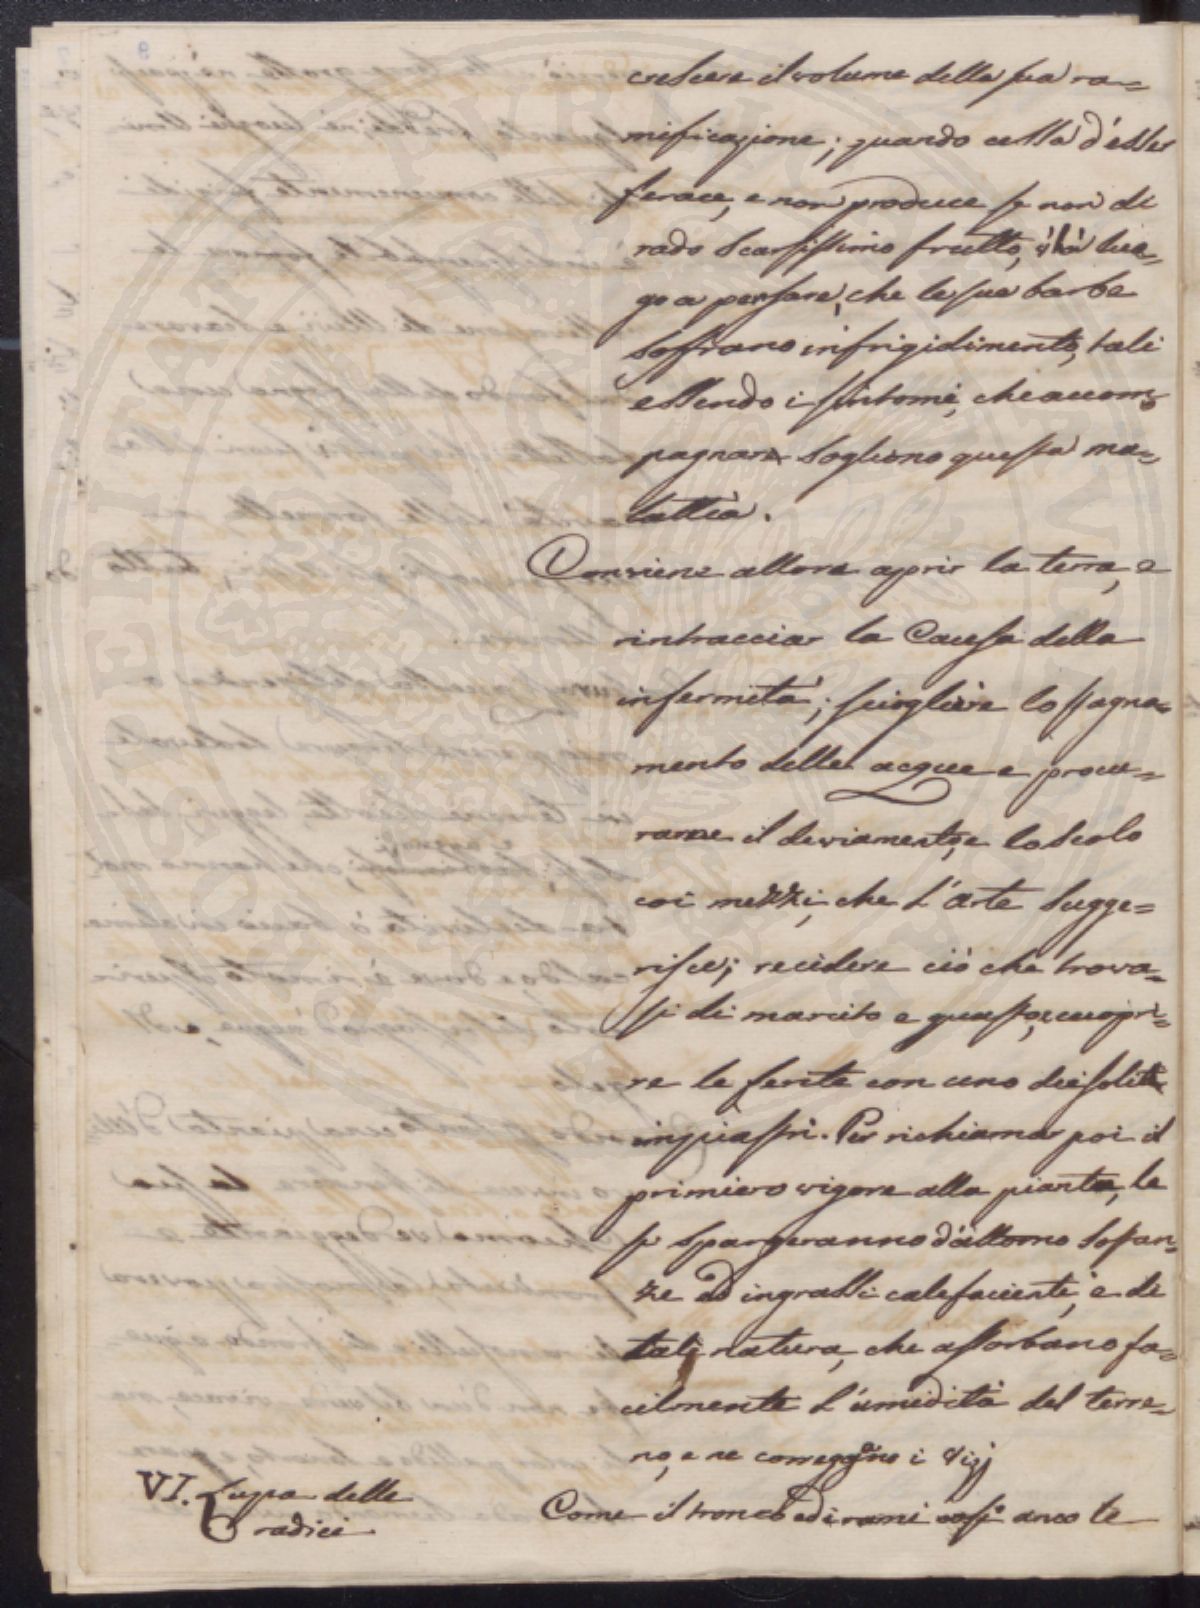 crescere il volume della sua ra=
mificazione; quando cessa d'esser
ferace, e non produce se non di
rado scarsissimo frutto, v'hà luo=
go a pensare, che le sue barbe
soffrano infrigidimento, tali
essendo i sintomi, che accom=
pagnare sogliono questa ma=
lattia.
Conviene allora aprir la terra, e
rintracciar la Causa della
infermità; sciogliere lo stagna=
mento delle acque e procu=
rarne il deviamento, e lo scolo
coi mezzi, che l'arte sugge=
risce; recidere ciò che trova=
si di marcito e guasto, e cuopri=
re le ferite con uno dei soliti
impiastri. Per richiamar poi il
primiero vigore alla pianta, le
si spargeranno d'attorno sostan=
ze ed ingrassi calefacienti, e di
tali natura, che assorbano fa=
cilmente l'umidità del terre=
no, e ne correggano i vizj
VI. Lupa delle
radici
Come il tronco ed i rami così anco le